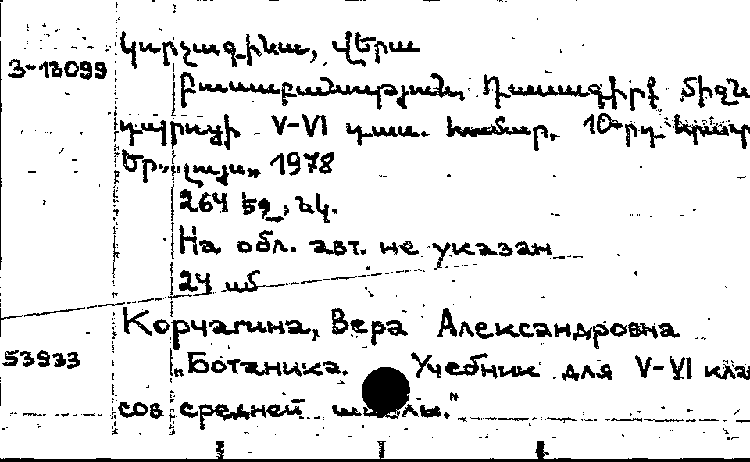 Կորչագինա, Վերա
3-13099
Բուսաբանություն, Դասագիրք միջն
դպրոցի V-VI դաս. համար, 10-րդ հրատ
1978
264 էջ, նկ.
На обл. авт. не указан
24 սմ
Корчагина, Вера Александровна
53933 „Ботаника. Учебник для V-VI кла
сов средней школы."